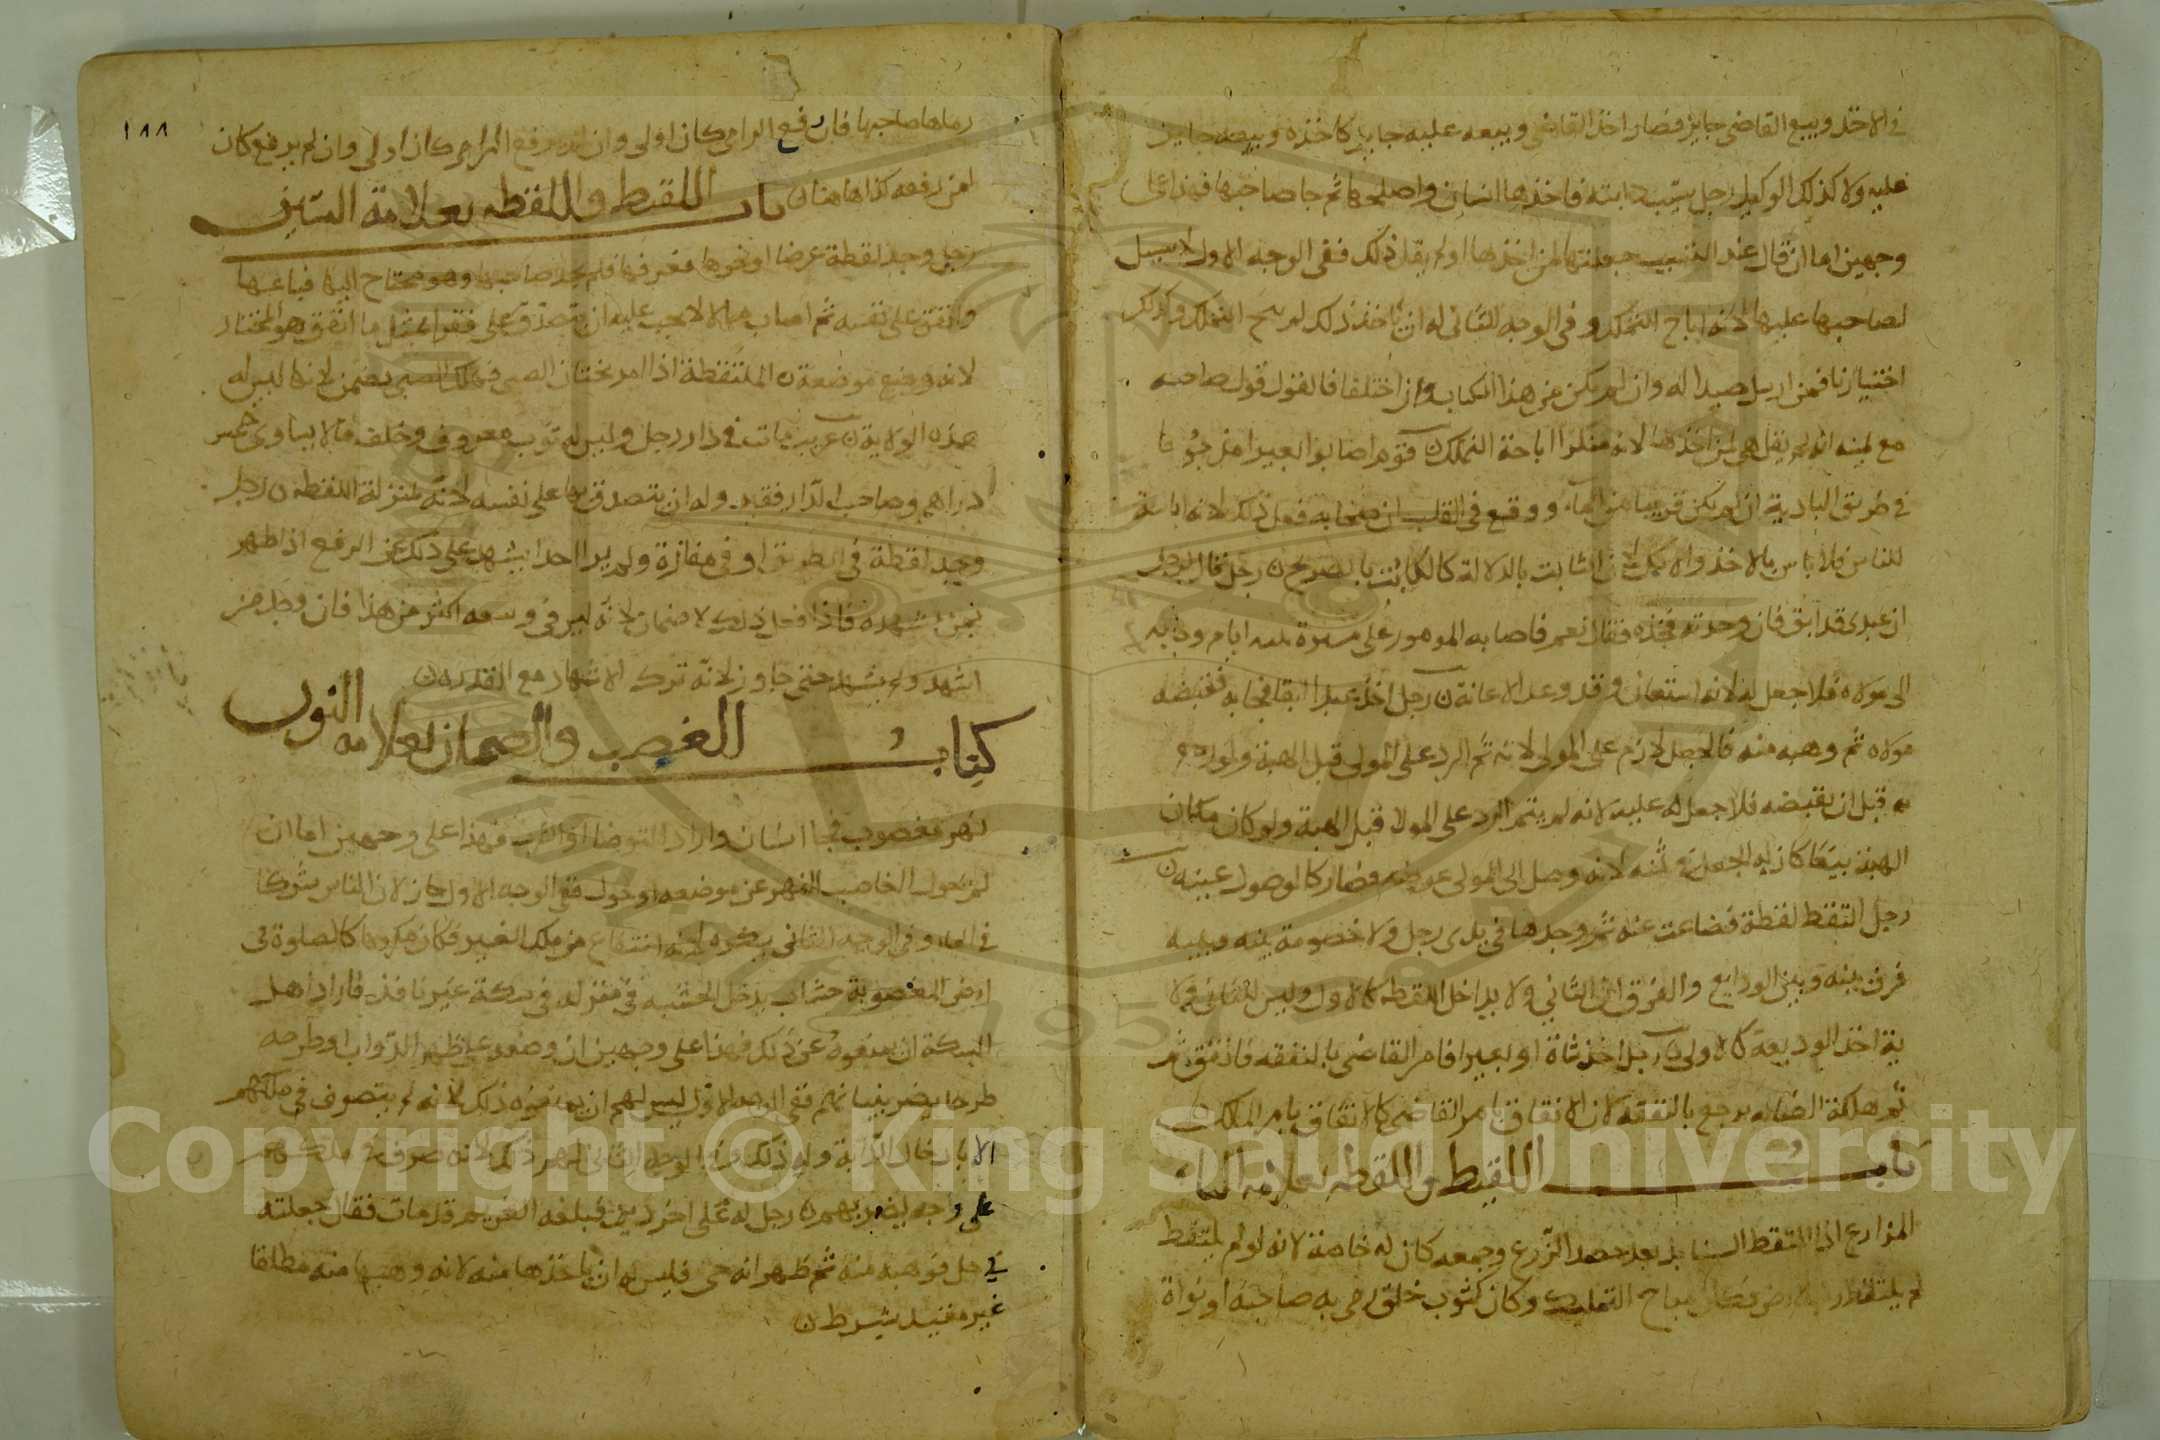 في الاخذ وبيع القاضي جايز فصار اخذ القاضي وبيعه عليه جايز كاخذه وبيعه جايز
عليه ولا كذلك الوكيل رجل سيب دابته فاخذها انسان واصلحها ثم جا صاحبها فهذا على
وجهين اما ان قال عند التسييب جعلتها لمن اخذها اولم يقل ذلك ففي الوجه الاول لا سبيل
لصاحبها عليها لانه اباح التملك وفي الوجه الثاني له ان ياخذ ذلك لم يبح التملك وكذلك
اختيارنا فمن ارسل صيدا له وان لم يكن من هذا الكتاب وان اختلفا فالقول قول صاحبه
مع يمينه انه لم يقل هي لمن اخذها لانه منكرا اباحة التملك ن قوم اصابوا بعيرا مذبوحا
في طريق البادية ان لم يكن قريبا من الماء ووقع في القلب ان صاحبه فعل ذلك لانه اباحة
للناس فلا باس بالاخذ والاكل لان الثابت بالدلالة كالثابت بالصريح ن رجل قال لرجل
ان عبدى قد ابق فان وجدته فخذه فقال نعم فاصابه المامور على مسيرة ثلثة ايام وجا به
الى مولاه فلا جعل له لانه استعان وقد وعد الاعانة ن رجل اخذ عبدا ابقا فجا به فقبضه
مولاه ثم وهبه منه فالجعل لازم على المولى لانه تم الرد على المولى قبل الهبة ولو
قبل ان يقبضه فلا جعل له عليه لانه لم يتم الرد على المولا قبل الهبة ولو كان مكان
الهبة بيعا كان له الجعل ثمنه لانه وصل الى المولى عوضه فصار كالوصول عينه ن
رجل التقط لقطة فضاعت عنه ثم وجدها في يدى رجل ولا خصومة بينه وبينه
فرق بينه وبين الودايع والفرق ان الثاني ولا يد اخذ اللقطة كالاول وليس للثاني ولا
ية اخذ الوديعة كالاولى ن رجل اخذ شاة او بعيرا فامر القاضي بالنفقة فانفق ثم
ثم هلكة الضاله يرجع بالنفقة لان الانفاق بامر القاضي كالانفاق بامر الملك ن
باب اللقيط واللقطه بعلامة
المزارع اذا التقط السنابل بعد حصد الزرع وجمعه كان له خاصة لانه لو لم يلتقط
لم يلتقط التمليك وكان كثوب خلق رمى به صاحبه او نواة
١٨٨
رماها صاحبها فان رفع المرامي كان اولى وان لم يرفع كان
امن رفعه كذا هاهنا ن باب اللقيط واللقطه بعلامة السين
رجل وجد لقطة عرضا او نحوها فعرفها فلم يجد صاحبها وهو محتاح اليها فباعها
وانفق على نفسه ثم اصاب مالا لا يجب عليه ان يتصدق على فقرا بمثل ما انفق هو المختار
لانه وضع موضعه ن الملتقطة اذا امر بختان الصبي فهلك الصبي يضمن لانها ليس له
هذه الولاية ن غريب مات في دار رجل وليس له ثوب معروف وخلف مالا يساوى خمس
دراهم وصاحب الدار فقير وله ان يتصدق بها على نفسه لانه بمنزلة اللقطة ن رجل
وجد لقطة في الطريق او في مفازة ولم ير احدا يشهد على ذلك عند الرفع اذا ظهر
بمن يشهده فاذا فعل ذلك لا ضمان لانه ليس في وسعه اكثر من هذا فان وجد من
اشهد ولم يشهد حتى جاوز لانه ترك الاشهاد مع القدرة ن
كتاب الغصب والضمان بعلامه النون
نهر مغصوب فجا انسان واراد التوضا او الشرب فهذا على وجهين اما ان
لم يحول الغاصب النهر عن موضعه او حول ففي الوجه الاول جاز لان الناس شركا
في الماء وفي الوجه الثاني يكره لانه انتفاع من ملك الغير فكان مكروها كالصلوة في
ارض المغصوبة حشاب يدخل الخشبه في منزله في سكة غير نافذ فاراد اهل
السكة ان يمنعوه عن ذلك فهذا على وجهين ان وضعه على ظهر الدواب او طرحه
طرحا يضر بنيانهم ففي الوجه الاول ليس لهم ان يمنعوه ذلك لانه لم يتصرف في ملكهم
الا بادخال الدابة وله ذلك وفي الوجه الثاني لهم ذلك لانه تصرف في ملكهم
على وجه يضر بهم ن رجل له على اخر دين فبلغه الغريم قد مات فقال جعلته
في حل فوهبه منه ثم ظهر انه حي فليس له ان ياخذها منه لانه وهبها منه مطلقا
غير مقيد بشرط ن
Copyright © King Saud University
1957